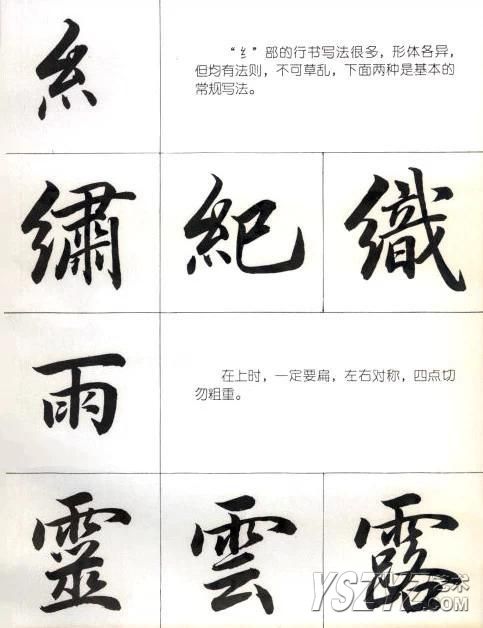 糹
“纟”部的行书写法很多，形体各异，
但均有法则，不可草乱，下面两种是基本的
常规写法。
繡 紀 織
雨
在上时，一定要扁，左右对称，四点切
勿粗重。
靈 雲 露
YSZYZ 艺术